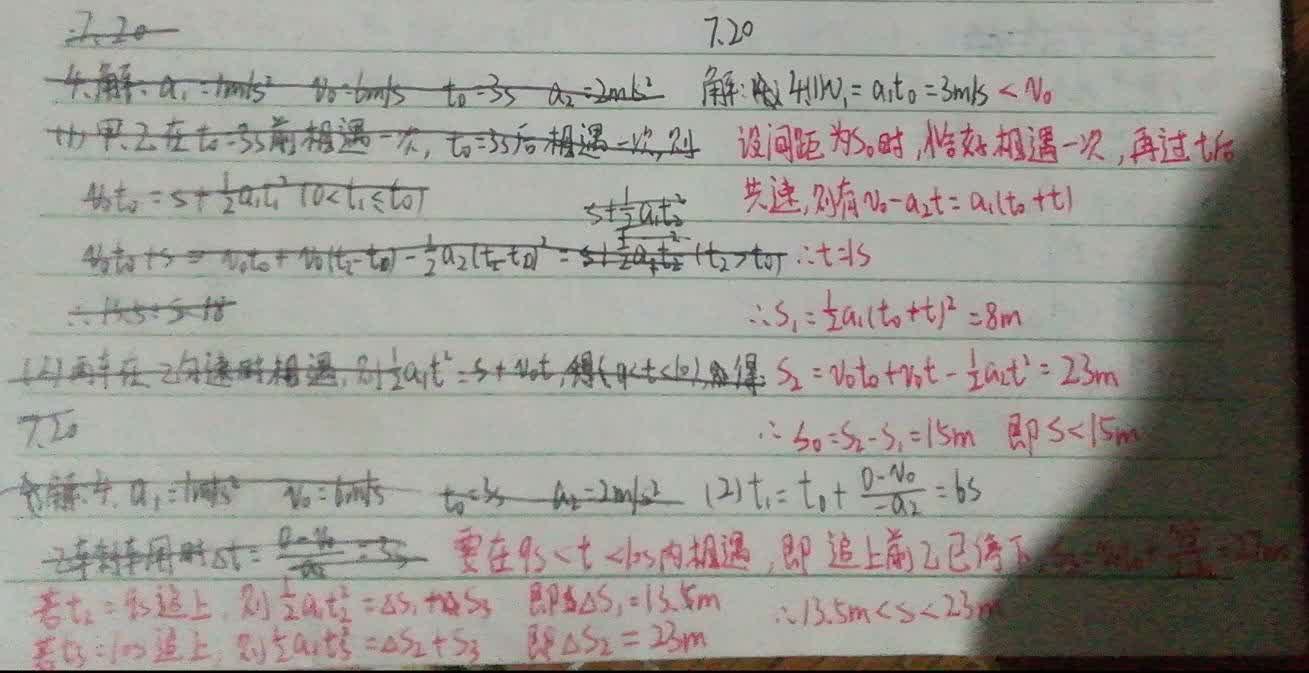 7.20
7.20
4.解: a₁=1m/s² v₀=6m/s t₀=3s a₂=2m/s²
(1)甲.乙在t₀=3s前相遇一次, t₀=3s后相遇一次,则
v₀t₀=s+½a₁t₁² (0<t₁≤t₀)
s+½a₁t₂²
v₀t₀+s=v₀t₀+v₀(t₂-t₀)-½a₂(t₂-t₀)²=s+½a₁t₂² (t₂>t₀)
乙匀速时相遇,则½a₁t²=s+v₀t,
7.20
解:4. a₁=1m/s² v₀=6m/s t₀=3s a₂=2m/s²
乙车刹车用时Δt= =3s
解: 4.(1)v₁=a₁t₀=3m/s<v₀
设间距为s₀时,恰好相遇一次,再过t后
共速,则有v₀-a₂t=a₁(t₀+t)
∴t=1s
∴s₁=½a₁(t₀+t)²=8m
s₂=v₀t₀+v₀t-½a₂t²=23m
∴s₀=s₂-s₁=15m 即s<15m
(2)t₁=t₀+(0-v₀)/(-a₂)=6s
要在9s<t<10s内相遇,即追上前乙已停下,
若t₂=9s追上,则½a₁t₂²=Δs₁+s₃ 即Δs₁=13.5m
若t₃=10s追上,则½a₁t₃²=Δs₂+s₃ 即Δs₂=23m
∴13.5m<s<23m